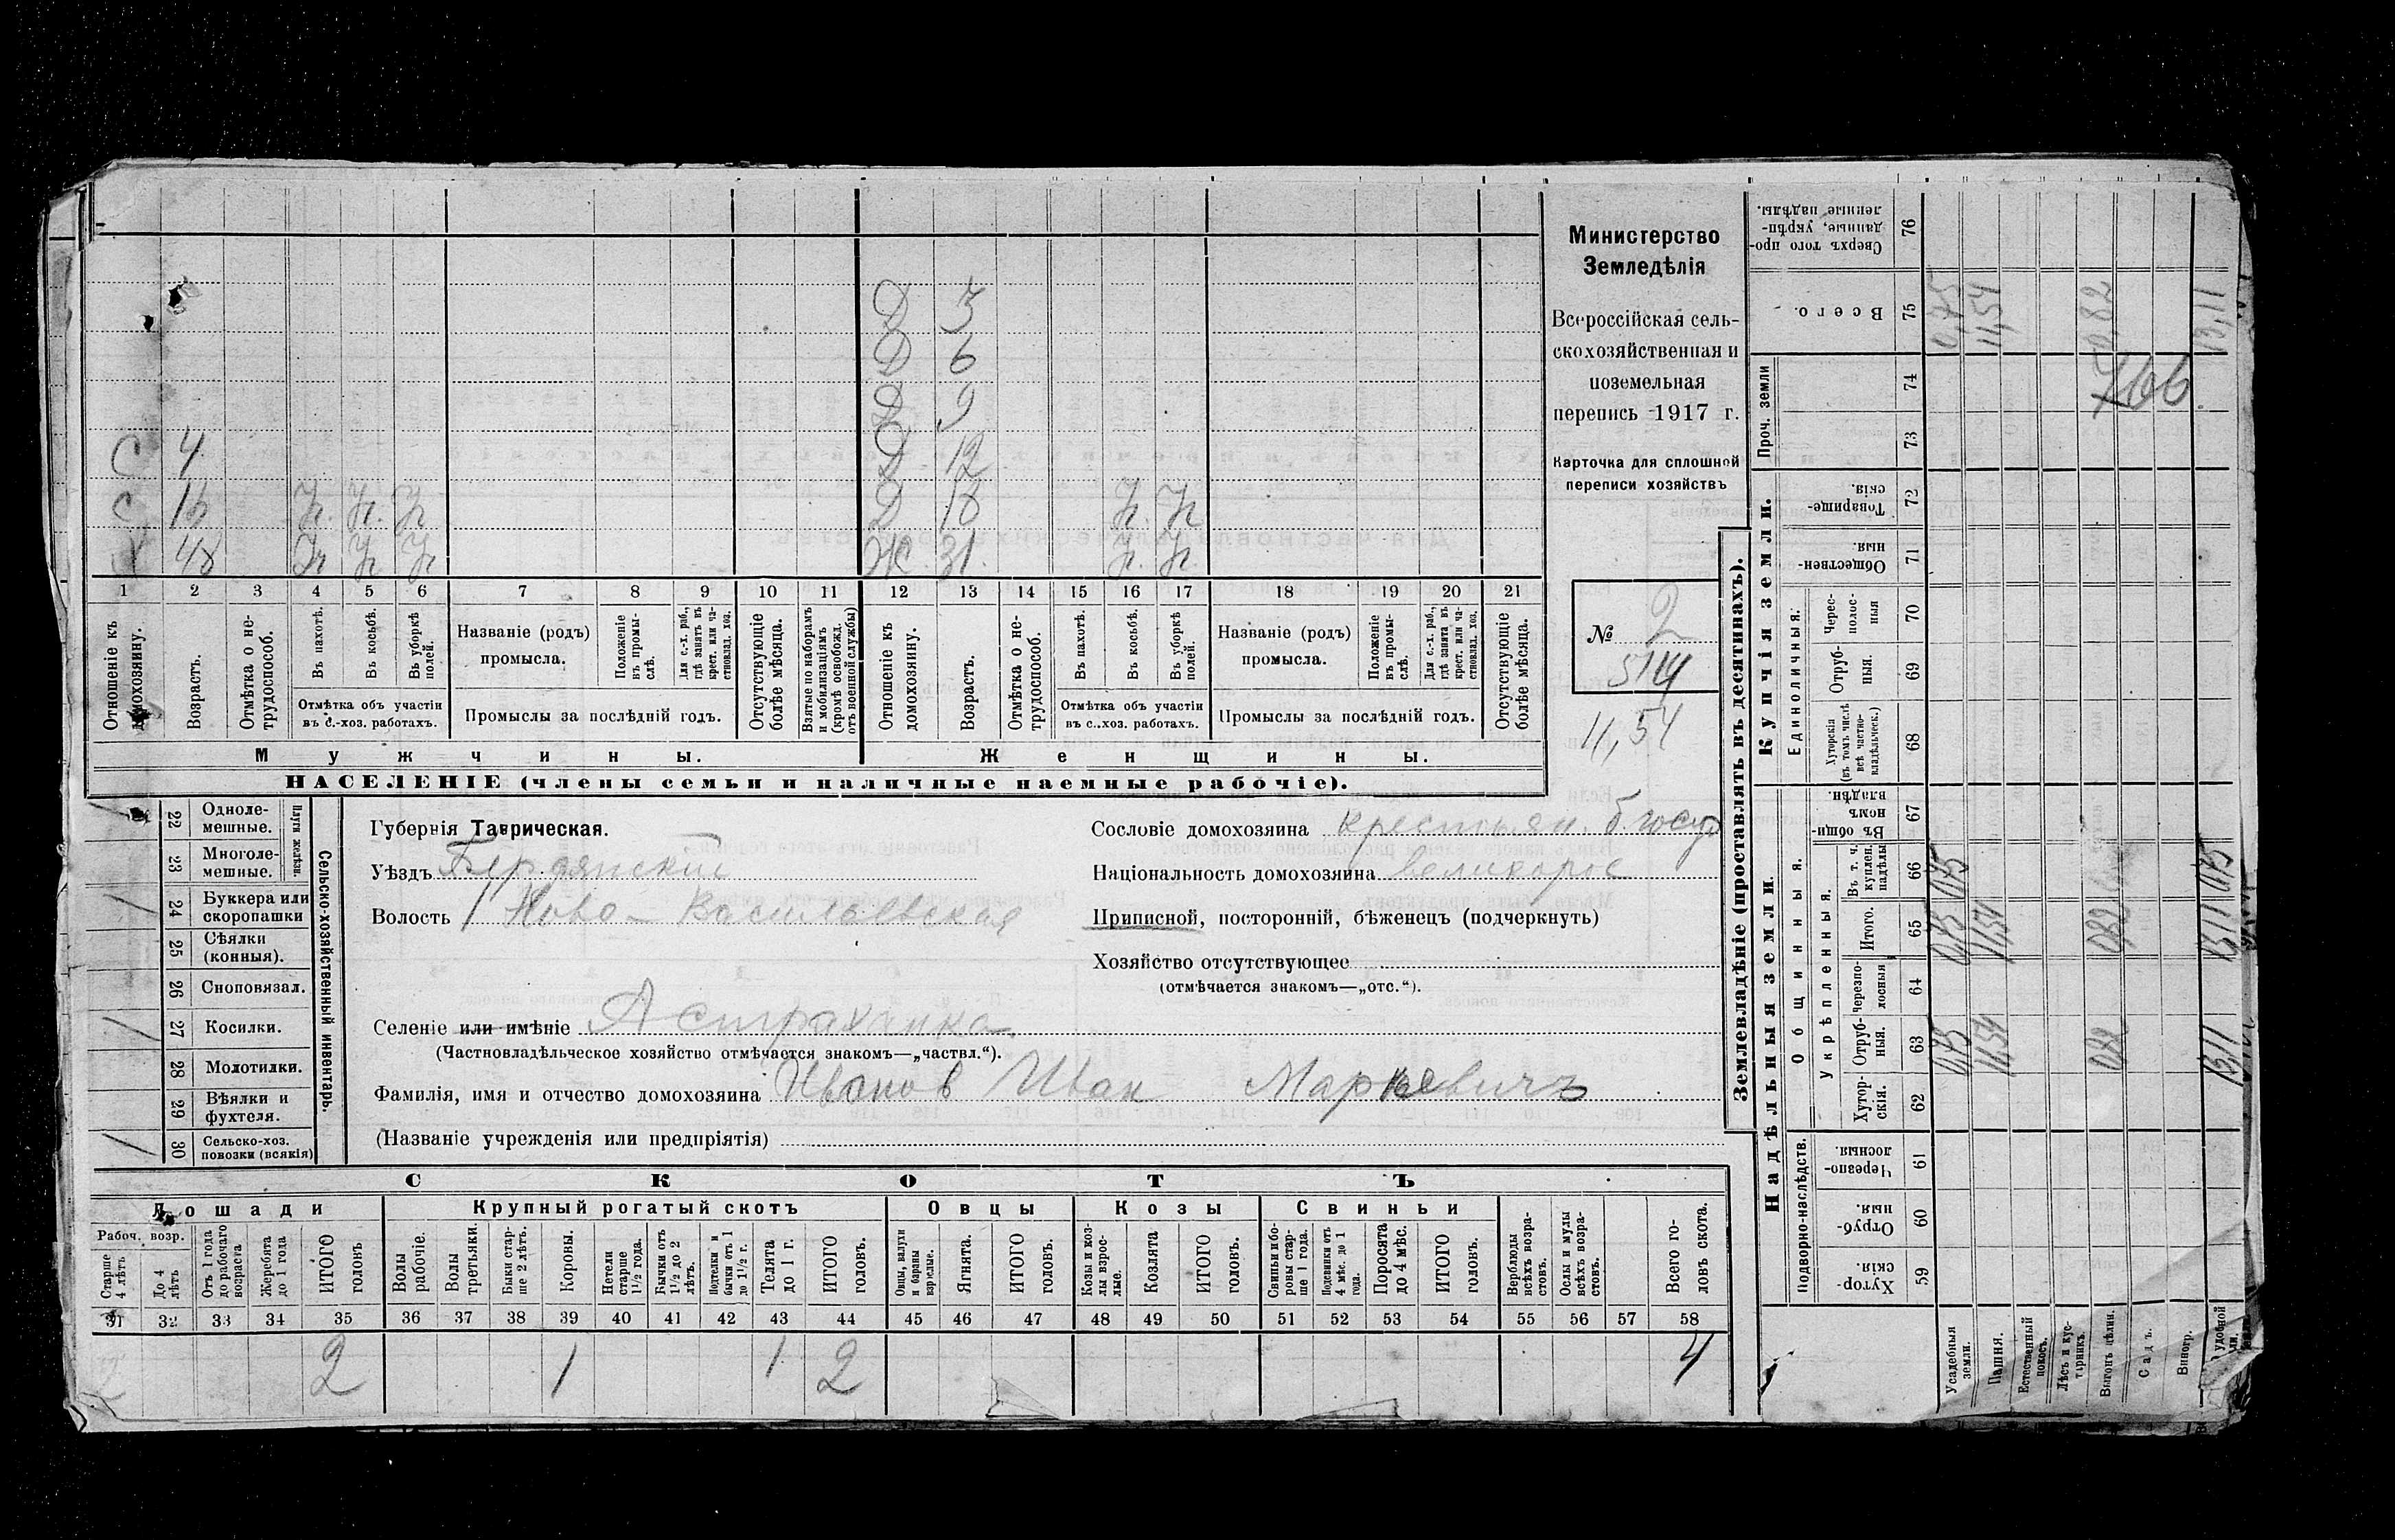 Д 3
Д 6
Д 9
С 4 Д 12
С 16 Д 18
Х 48 Ж 31
1 2 3 4 5 6 7 8 9 10 11 12 13 14 15 16 17 18 19 20 21
Отношеніе къ домохозяину.
Возрастъ.
Отмѣтка о нетрудоспособ.
Въ пахотѣ.
Въ косьбѣ.
Въ уборкѣ полей.
Отмѣтка объ участіи въ с.-хоз. работахъ.
Названіе (родъ) промысла.
Положеніе въ промыслѣ.
Для с.-х. раб., гдѣ занятъ въ крест. или частновлад. хоз.
Промыслы за послѣдній годъ.
Отсутствующіе болѣе мѣсяца.
Взятые по наборамъ и мобилизаціямъ (кромѣ освобожд. отъ военной службы)
Отношеніе къ домохозяину.
Возрастъ.
Отмѣтка о нетрудоспособ.
Въ пахотѣ.
Въ косьбѣ.
Въ уборкѣ полей.
Отмѣтка объ участіи въ с.-хоз. работахъ.
Названіе (родъ) промысла.
Положеніе въ промыслѣ.
Для с.-х. раб., гдѣ занята въ крест. или частновлад. хоз.
Промыслы за послѣдній годъ.
Отсутствующіе болѣе мѣсяца.
Мужчины.
Женщины.
НАСЕЛЕНІЕ (члены семьи и наличные наемные рабочіе).
Министерство
Земледѣлія
Всероссійская сель-
скохозяйственная и
поземельная
перепись 1917 г.
Карточка для сплошной
переписи хозяйствъ
№ 2
514
11,54
22 Одноле-мешные.
23 Многоле-мешные.
Плуги желѣзн.
24 Буккера или скоропашки
25 Сѣялки (конныя).
26 Сноповязал.
27 Косилки.
28 Молотилки.
29 Вѣялки и фухтеля.
30 Сельско-хоз. повозки (всякія)
Сельско-хозяйственный инвентарь.
Губернія Таврическая.
Уѣздъ Бердянскій
Волость Ново-Васильевская
Сословіе домохозяина крестьян. б. госуд
Національность домохозяина великорос
Приписной, посторонній, бѣженецъ (подчеркнуть)
Хозяйство отсутствующее
(отмѣчается знакомъ—„отс.“).
Селеніе или имѣніе Астраханка
(Частновладѣльческое хозяйство отмѣчается знакомъ—„частвл.“).
Фамилія, имя и отчество домохозяина Иванов Иван Маркевичъ
(Названіе учрежденія или предпріятія)
СКОТЪ
Лошади
Крупный рогатый скотъ
Овцы
Козы
Свиньи
Рабоч. возр.
Старше 4 лѣтъ
До 4 лѣтъ
Отъ 1 года до рабочаго возраста
Жеребята до 1 года
ИТОГО головъ
Волы рабочіе.
Волы третьяки.
Быки старше 2 лѣтъ.
Коровы.
Нетели старше 1½ года.
Бычки отъ 1½ до 2 лѣтъ.
Подтелки и бычки отъ 1 до 1½ г.
Телята до 1 г.
ИТОГО головъ.
Овцы, валухи и бараны взрослые.
Ягнята.
ИТОГО головъ.
Козы и козлы взрослые.
Козлята
ИТОГО головъ.
Свиньи и боровы старше 1 года.
Подсвинки отъ 4 мѣс. до 1 года.
Поросята до 4 мѣс.
ИТОГО головъ.
Верблюды всѣхъ возрастовъ.
Ослы и мулы всѣхъ возрастовъ.
Всего головъ скота.
31 32 33 34 35 36 37 38 39 40 41 42 43 44 45 46 47 48 49 50 51 52 53 54 55 56 57 58
2 1 1 2 4
Землевладѣніе (проставлять въ десятинахъ).
Надѣльныя земли.
Купчія земли.
Проч. земли
Подворно-наслѣдств.
Общинныя.
Укрѣпленныя.
Единоличныя.
Хуторскія 59
Отрубныя. 60
Черезполосныя. 61
Хуторскія. 62
Отрубныя. 63
Черезполосныя 64
Итого. 65
Въ т. ч. куплен. надѣлы 66
Въ общинномъ владѣн. 67
Хуторскія (въ томъ числѣ всѣ частновладѣльческ.) 68
Отрубныя. 69
Чересполосныя 70
Общественныя. 71
Товарищескія. 72
73
74
Всего. 75
Сверхъ того проданные, укрѣпленные надѣлы. 76
Усадебныя земли.
Пашня.
Естественный покосъ.
Лѣсъ и кустарникъ.
Выгонъ цѣлин.
Садъ.
Виногр.
удобной
0,75 11,54 0,82 13,11
766
0,75 0,75
0,75 11,54 0,82 13,11
0,75 11,54 0,82 13,11